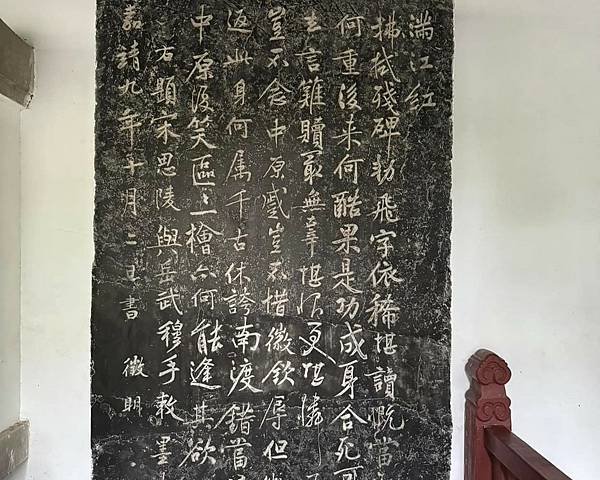 滿江紅
拂拭殘碑勑飛字依稀堪讀慨當
何重後来何酷果是功成身合死可
去言難贖最無辜堪恨更堪憐
豈不念中原蹙豈不惜徽欽辱但
返此身何属千古休誇南渡錯當
中原復笑區〻一檜亦何能逢其欲
右題宋思陵與岳武穆手敕墨
嘉靖九年十月二日書 徵明